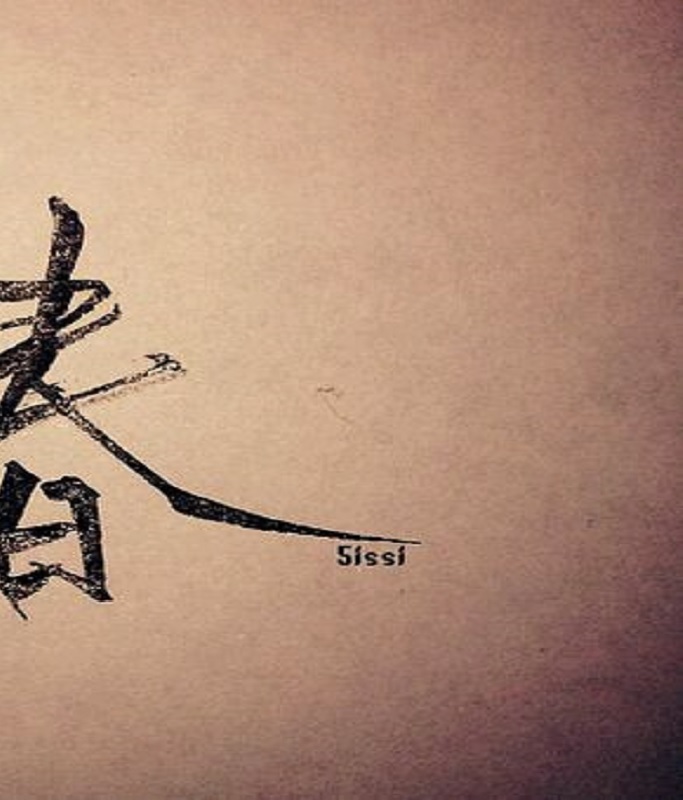 春
5issi